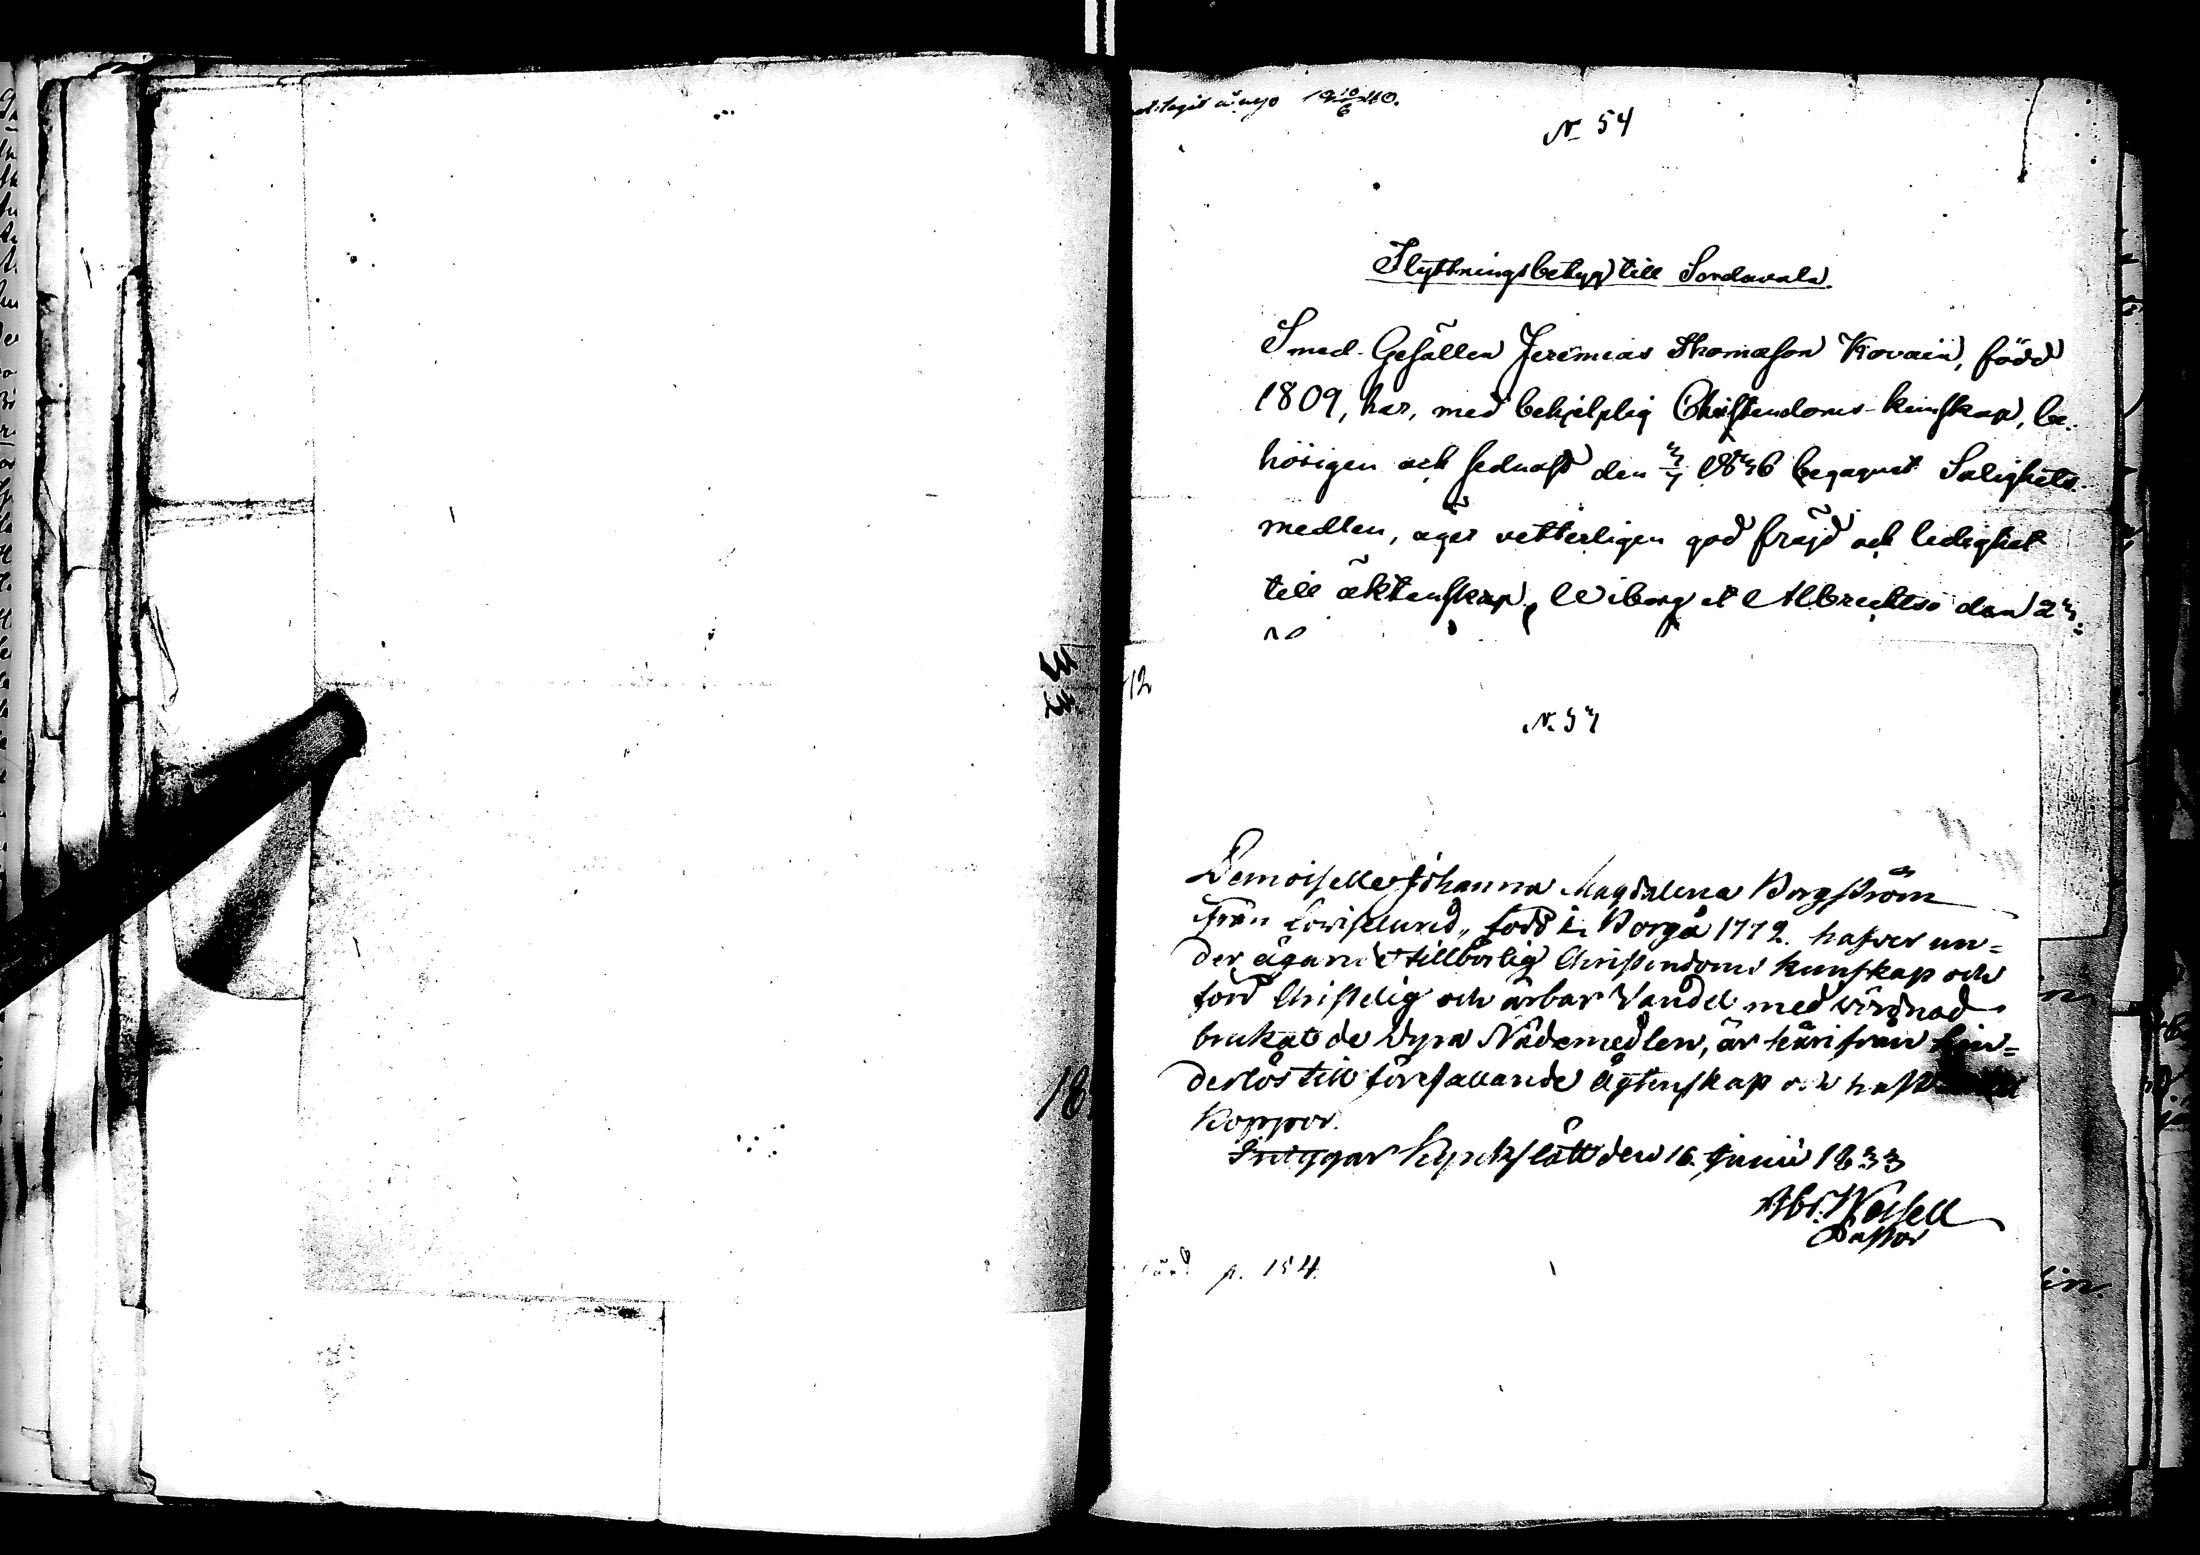 N 54
Flyttningsbetyg till Sordavala.
Smed-Gesällen Jeremias Thomasson Kovain, född
1809, har, med behjelplig Christendoms-kunskap, be-
hörigen och sednast den 1836 begagnat Salighets-
medlen, äger vetterligen god fräjd och ledighet
till äktenskap, Wiborg et Albrechtso den 23.
12
N. 57
Demoiselle Johanna Magdalena Borgström
från Lovislund, född i Borgå 1772. hafver un-
der ägande tillbörlig Christendoms kunskap och
förd Christelig och ärbar Vandel med vördnad
brukat de dyra Nådemedlen, är härifrån hin-
derlös till förefallande Ägtenskap och haft
Koppor.
Kyrkslätt den 16 Junii 1833
Abr. Weisell
Pastor
p. 154.
18